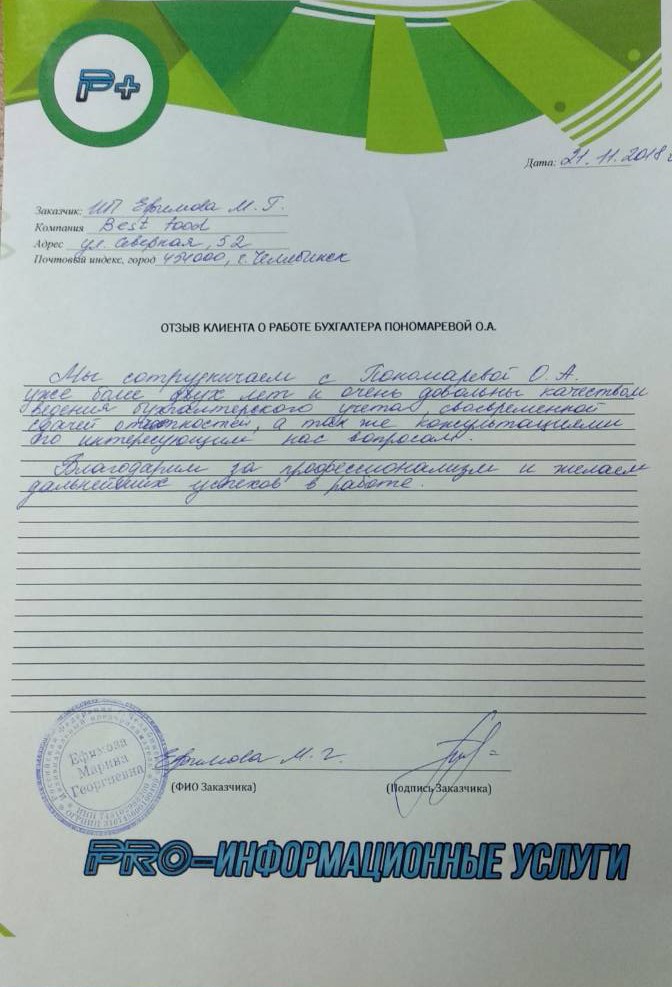 P+
Дата: 21.11.2018 г
Заказчик: ИП Ефимова М.Г.
Компания Best food
Адрес ул. Северная, 52
Почтовый индекс, город 454000, г. Челябинск
ОТЗЫВ КЛИЕНТА О РАБОТЕ БУХГАЛТЕРА ПОНОМАРЕВОЙ О.А.
Мы сотрудничаем с Пономаревой О.А.
уже более двух лет и очень довольны качеством
ведения бухгалтерского учета, своевременной
сдачей отчетностей, а так же консультациями
по интересующим нас вопросам.
Благодарим за профессионализм и желаем
дальнейших успехов в работе.
Ефимова
Марина
Георгиевна
Ефимова М.Г.
(ФИО Заказчика)
(Подпись Заказчика)
PRO-ИНФОРМАЦИОННЫЕ УСЛУГИ